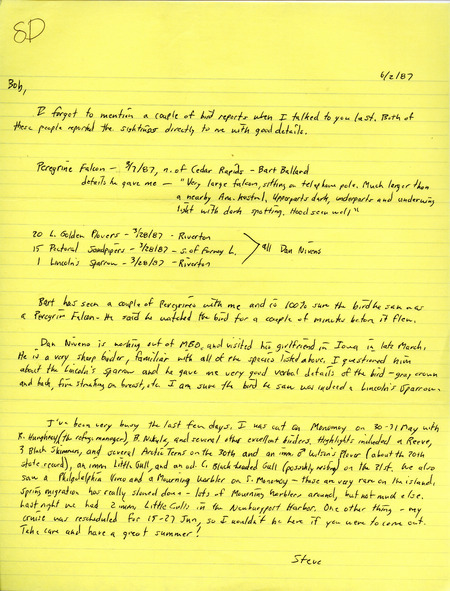 SD
6/2/87
Bob,
I forgot to mention a couple of bird reports when I talked to you last. Both of
these people reported the sightings directly to me with good details.
Peregrine Falcon - 3/7/87, n. of Cedar Rapids - Bart Ballard
details he gave me - "Very large falcon, sitting on telephone pole. Much larger than
a nearby Am. Kestrel, Upperparts dark, underparts and underwing
light with dark spotting. Hood seen well"
20 L. Golden Plovers - 3/28/87 - Riverton
15 Pectoral Sandpipers - 3/28/87 - s. of Forney L. all Dan Niveno
1 Lincoln's Sparrow - 3/28/87 - Riverton
Bart has seen a couple of Peregrines with me and is 100% sure the bird he saw was
a Peregrin Falcon. He said he watched the bird for a couple of minutes before it flew.
Dan Niveno is working out of MBO, and visited his girlfriend in Iowa in late March.
He is a very sharp birder, familiar with all of the species listed above. I questioned him
about the Lincoln's sparrow and he gave me very good verbal details of the bird - gray crown
and back, fine streaking on breast, etc. I am sure the bird he saw was indeed a Lincoln's Sparrow.
I've been very busy the last few days. I was out on Monomoy on 30-31 May with
Humphrey (the refuge manager), B. Nikula, and several other excellent birders. Highlights included a Reeve,
3 Black Skimmers, and several Arctic Terns on the 30th and an imm ♂ Wilson's Plover (about the 20th
state record), an imm. Little Gull, and an ad. C. Black-headed Gull (possibly nesting) on the 31st. We also
saw a Philadelphia Vireo and a Mourning Warbler on S. Monomoy - those are very rare on the islands.
Spring migration has really slowed down - lots of Mourning Warblers around, but not much else.
Last night we had 2 imm Little Gulls in the Newburyport Harbor. One other thing - my
cruise was rescheduled for 15-27 Jun, so I wouldn't be here if you were to come out.
Take care and have a great summer!
Steve